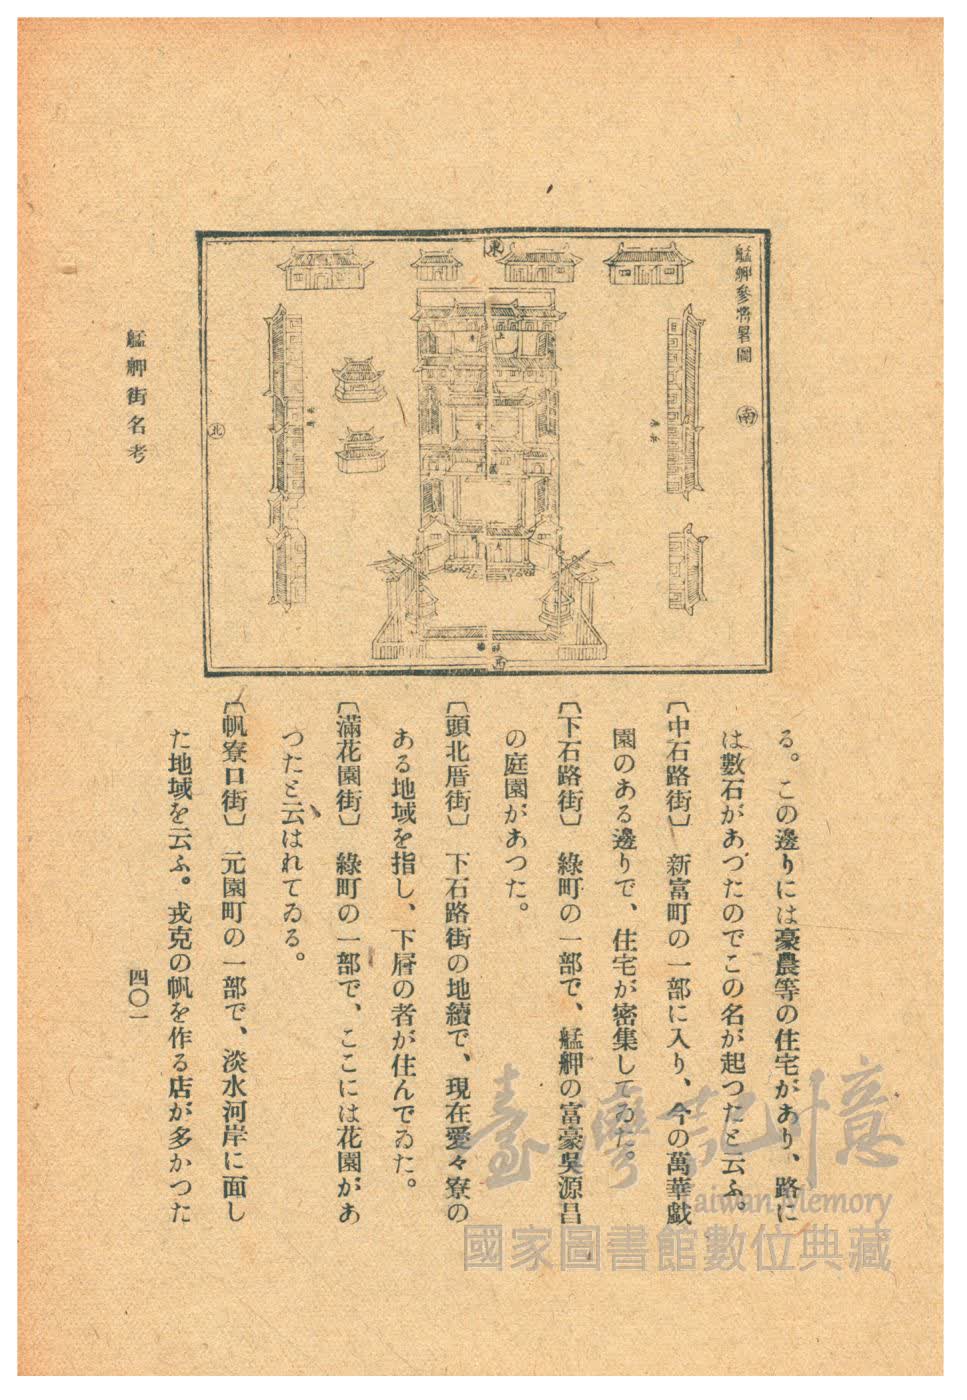 艋舺參將署圖
南
東
北
西
る。この邊りには豪農等の住宅があり、路に
は數石があつたのでこの名が起つたと云ふ。
〔中石路街〕 新富町の一部に入り、今の萬華戯
園のある邊りで、住宅が密集してゐた。
〔下石路街〕 綠町の一部で、艋舺の富豪吳源昌
の庭園があつた。
〔頭北厝街〕 下石路街の地續で、現在愛々寮の
ある地域を指し、下層の者が住んでゐた。
〔滿花園街〕 綠町の一部で、ここには花園があ
つたと云はれてゐる。
〔帆寮口街〕 元園町の一部で、淡水河岸に面し
た地域を云ふ。戎克の帆を作る店が多かつた
艋舺街名考
四〇一
臺灣記憶
Taiwan Memory
國家圖書館數位典藏